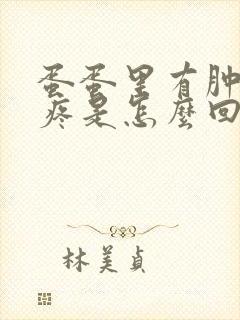 蛋蛋里有肿
疼是怎麽回
林美貞